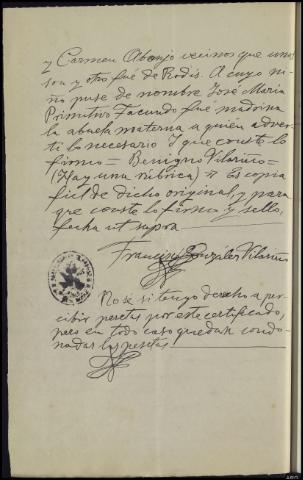 y Carmen Abonjo vecinos que unos
son y otro fué de Rodis. A cuyo ni-
ño puse de nombre José Maria
Primitivo Facundo fué madrina
la abuela materna a quien adver-
ti lo necesario Y que conste lo
firmo = Benigno Vilariño =
(Hay una rúbrica) Es copia
fiel de dicho original, y para
que conste lo firmo y sello,
fecha ut supra
Francisco González Vilariño
No sé si tengo derecho a per-
cibir pesetas por este certificado,
pero en todo caso quedan condo-
nadas las pesetas